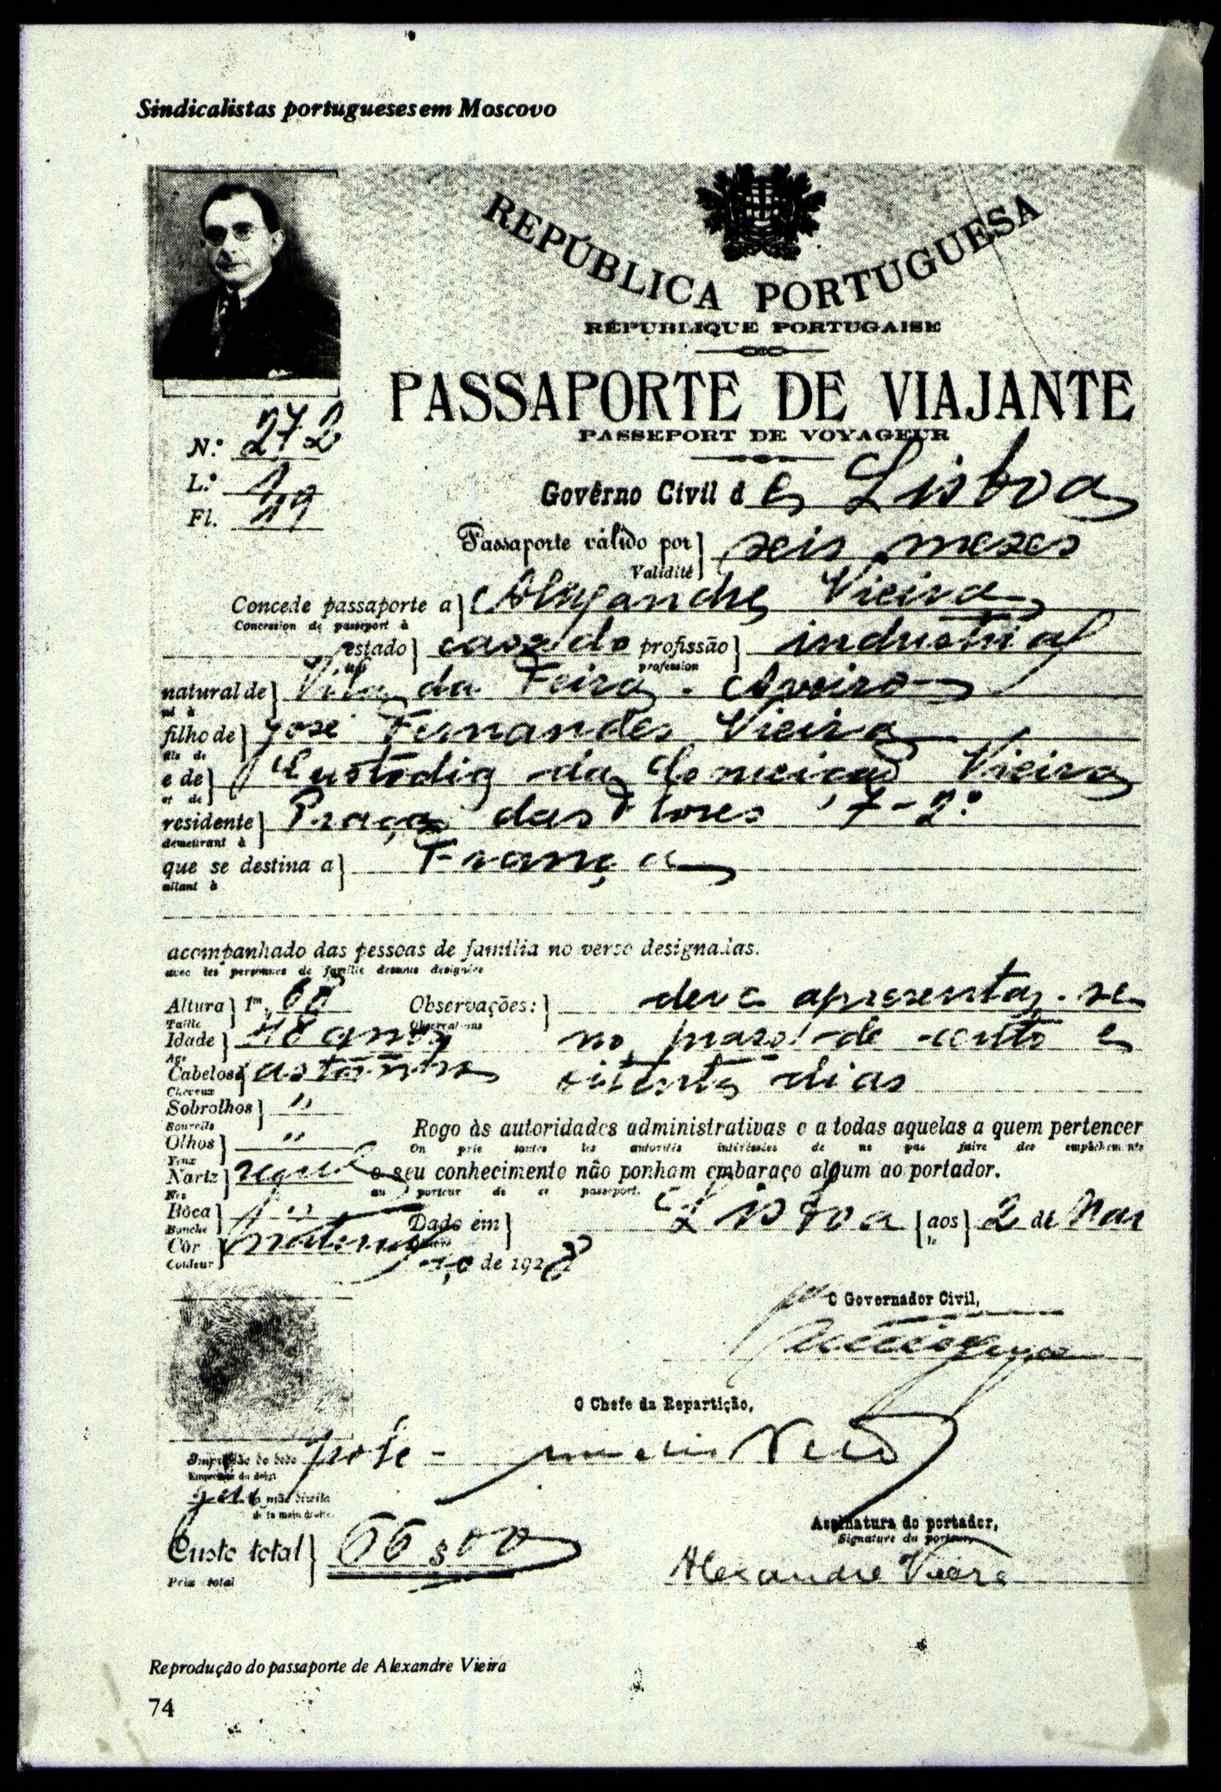 Sindicalistas portugueses em Moscovo
REPÚBLICA PORTUGUESA
RÉPUBLIQUE PORTUGAISE
PASSAPORTE DE VIAJANTE
PASSEPORT DE VOYAGEUR
N.º 272
L.º 1
Fl. 49
Govêrno Civil de Lisboa
Passaporte válido por} seis mezes
Validité
Concede passaporte a} Alexandre Vieira
Concession de passeport à
estado} casado profissão} industrial
profession
natural de} Vila da Feira - Aveiro
né à
filho de} José Fernandes Vieira
fils de
e de} Custódia da Conceição Vieira
et de
residente} Praça das Flores, 7-2º
demeurant à
que se destina a} França
allant à
acompanhado das pessoas de família no verso designadas.
avec les personnes de famille dessous designées
Altura} 1m,68 Observações:} deve apresentar-se
Taille Observations
Idade} 48 anos no prazo de cento e
Age
Cabelos} castanhos oitenta dias
Cheveux
Sobrolhos} "
Sourcils
Olhos} "
Yeux
Rogo às autoridades administrativas e a todas aquelas a quem pertencer
On prie toutes les autorités intéressées de ne pas faire des empêchements
Nariz} regular o seu conhecimento não ponham embaraço algum ao portador.
Nez au porteur de ce passeport.
Bôca} "
Bouche
Dado em} Lisboa {aos} 2 de Mar
le
Côr} natural
Couleur
ço de 1928
O Governador Civil,
O Chefe da Repartição,
Impressão do dedo
Empreinte du doigt
da mão direita
de la main droite
Custo total} 66$00
Prix total
Assinatura do portador,
Signature du porteur,
Alexandre Vieira
Reprodução do passaporte de Alexandre Vieira
74